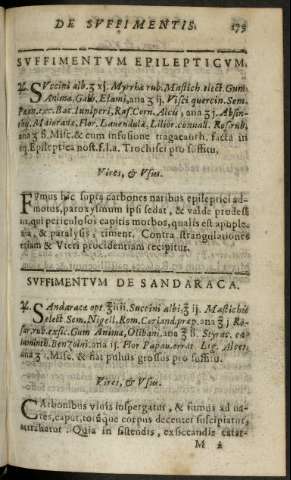 DE SVFFIMENTIS. 179
SVFFIMENTVM EPILEPTICVM.
℞. SVccini alb. ʒ xj. Myrrhæ rub. Mastich elect. Gum
Animæ, Galb, Elemi, ana ʒ ij. Visci quercin. Sem.
Pæon. exc. Bac. Iuniperi, Ras Corn. Alcis, ana ʒ j. Absin-
thij, Maioranæ, Flor. Lauendulæ, Lilior. conuall. Ros. rub.
ana ʒ ß. Misc. & cum infusione tragacanth. facta in
aq. Epileptica nost. f. l. a. Trochisci pro suffitu.
Vires, & Vsus.
FVmus hac supra carbones naribus epileptici ad-
motus, paroxysmum ipsi sedat, & valde prodest
in qui periculosos capitis morbos, qualis est apople-
xia, & paralysis, timent. Contra strangulationes
etiam & Vteri procidentiam recipitur.
SVFFIMENTVM DE SANDARACA.
℞. SAndaracæ opt. Succini albi. ʒ ij. Mastichis
elect Sem. Nigell. Rom. Coriand. præp. ana ʒ j Ro-
sar. rub. exsic. Gum Animæ, Oliban. ana ʒ ß. Styrac. ca-
laminte Benzoini. ana Flor Papau. errat. Lig. Aloes,
ana Misc. & fiat puluis grossus pro suffitu.
Vires, & Vsus.
CArbonibus viuis inspergatur, & fumus ad na-
res, caput, totumque corpus decenter suscipiatur,
attrahatur. Quia in sistendis, exsiccandis catar-
M 2